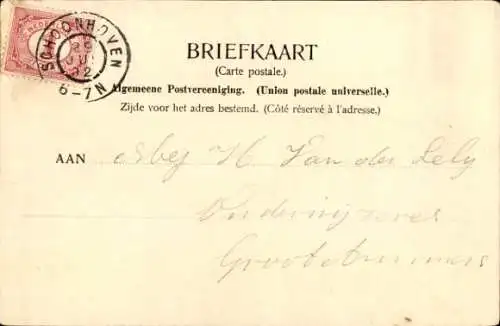 NEDERLAND
SCHOONHOVEN
6-7N
BRIEFKAART
(Carte postale.)
Algemeene Postvereeniging. (Union postale universelle.)
Zijde voor het adres bestemd. (Côté réservé à l'adresse.)
AAN H. Van der Lely
Onderwijzeres
Grootebroek